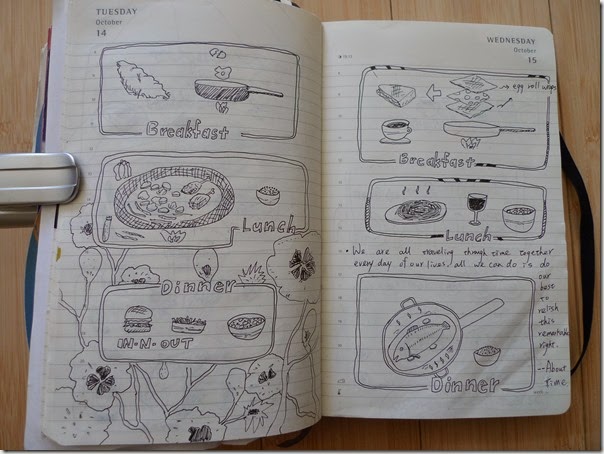 TUESDAY
October
14
Breakfast
Lunch
Dinner
IN-N-OUT
WEDNESDAY
October
15
egg roll wraps
Breakfast
Lunch
• We are all traveling through time together
every day of our lives. all we can do is do
our
best
to
relish
this
remarkable
right.
--About
time
Dinner